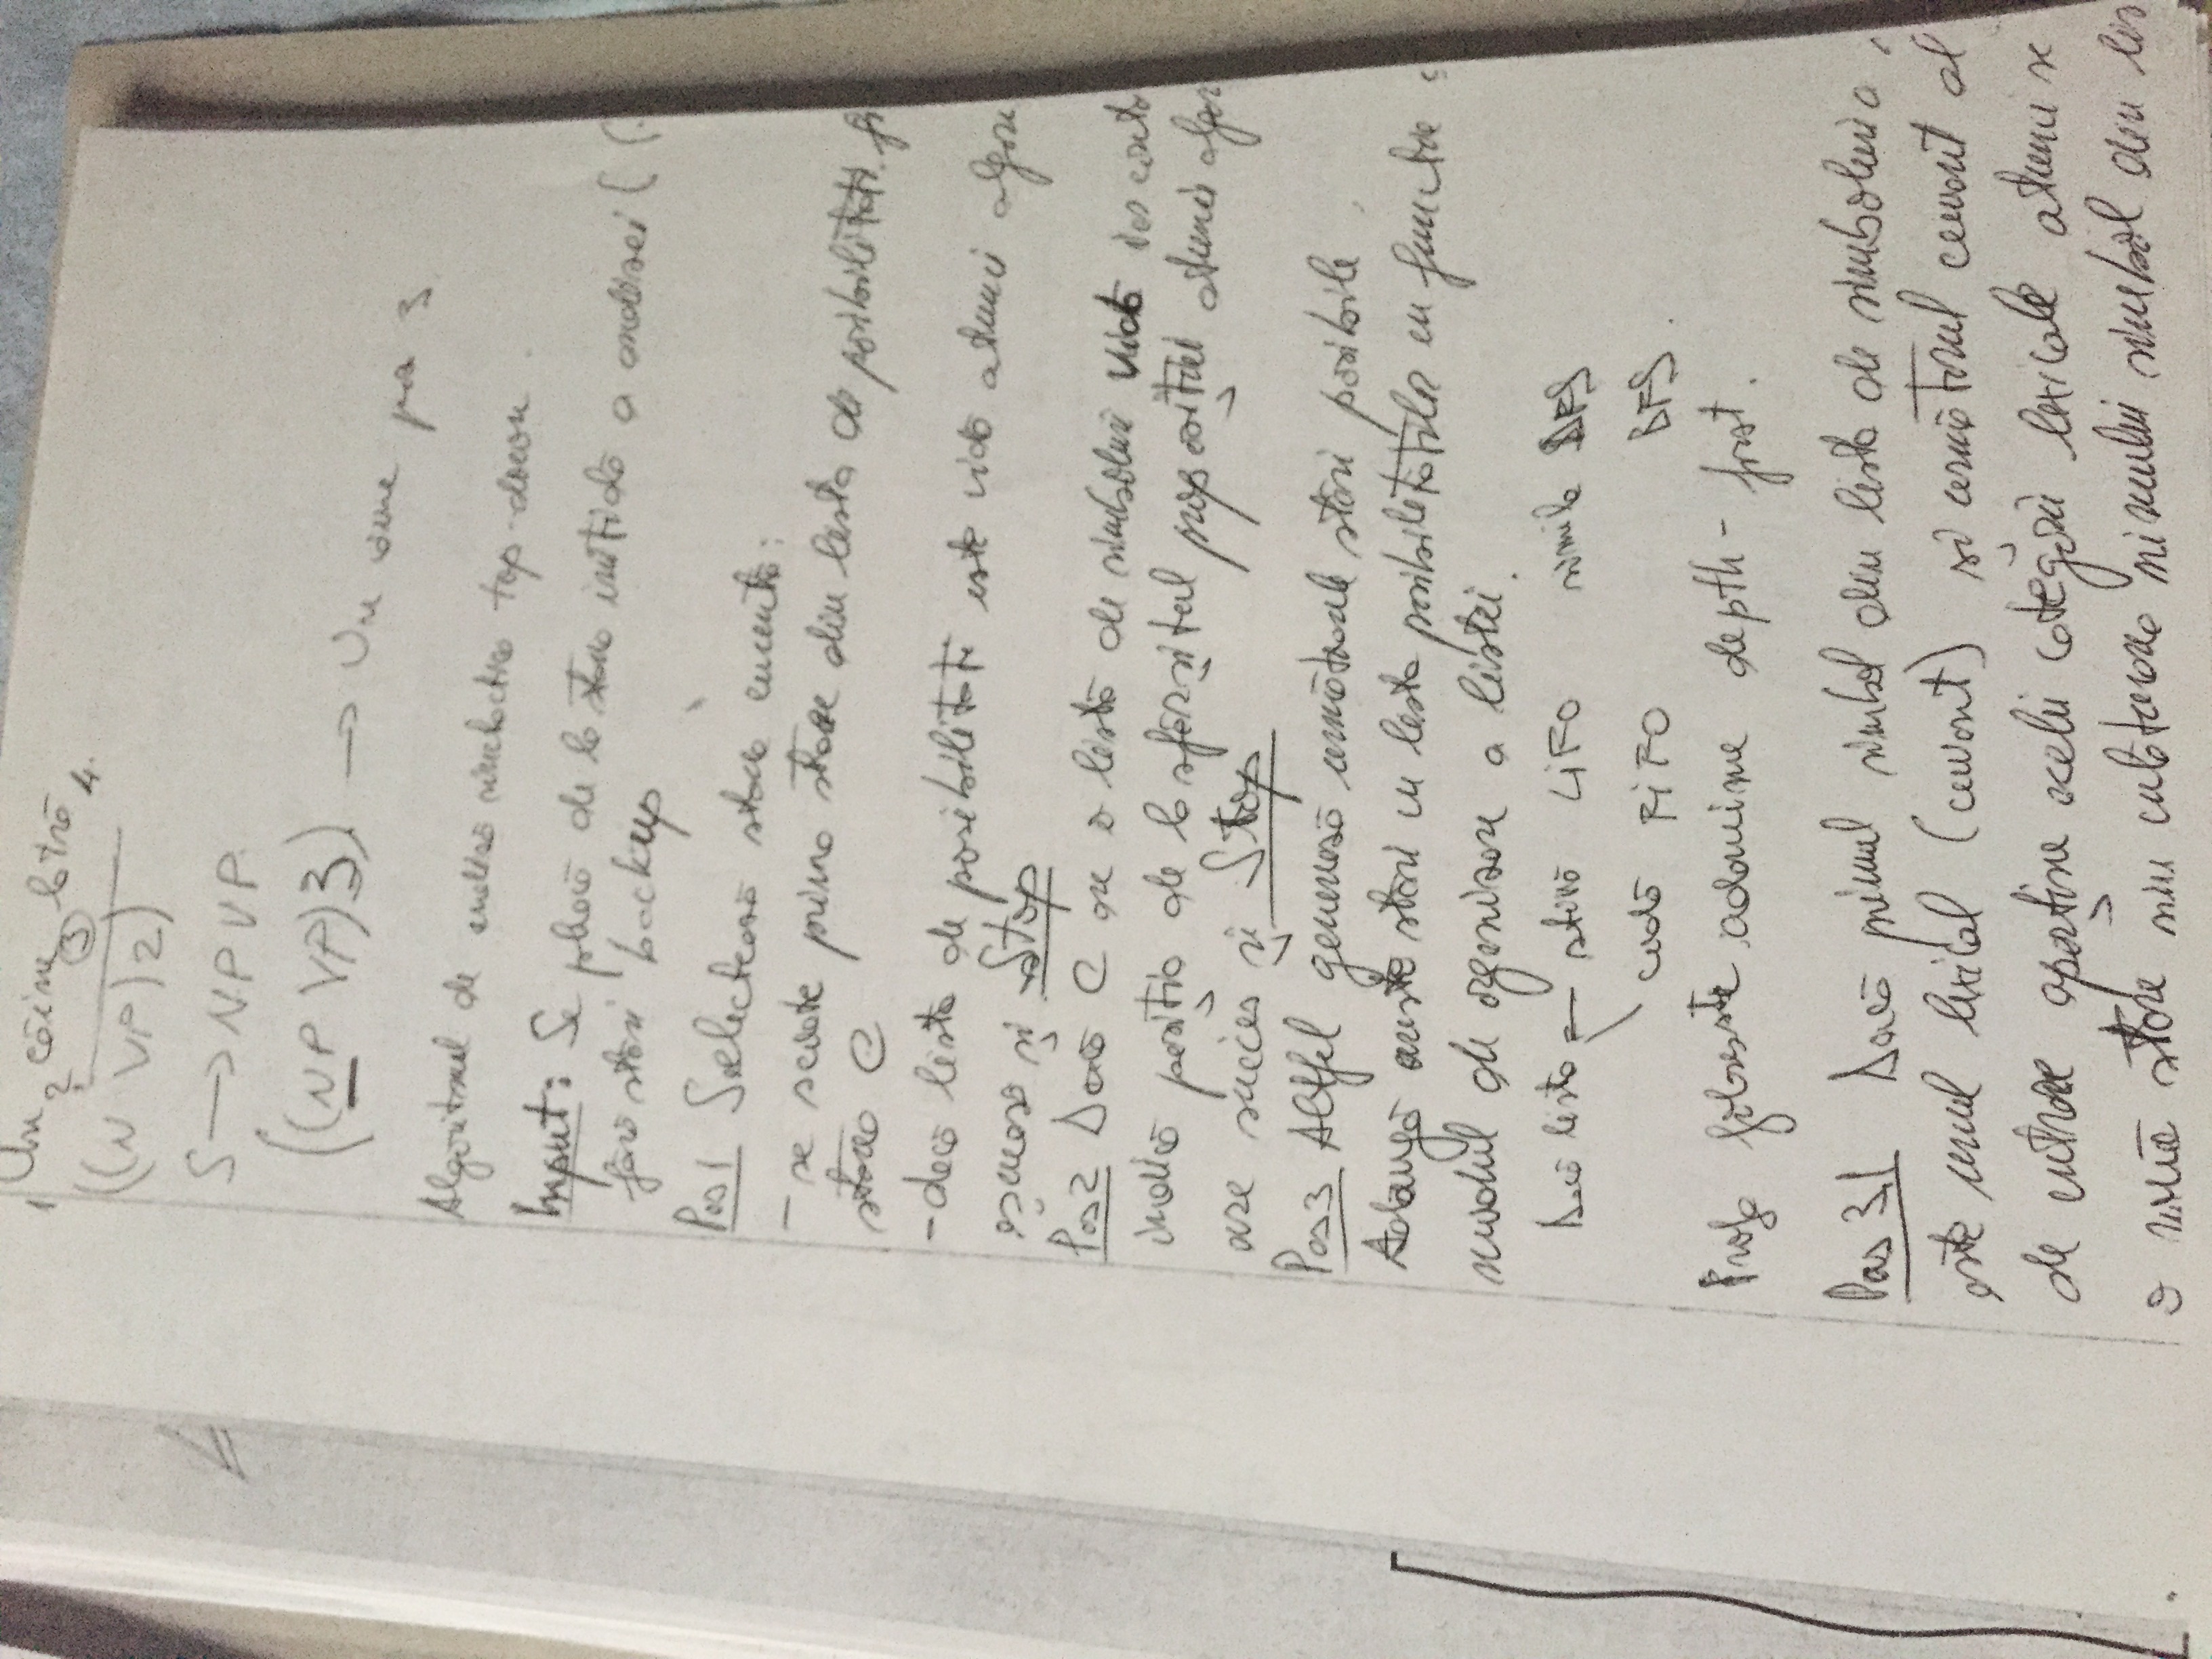 1 Un 2 câine 3 latră 4.
((N VP) 2)
S → NP VP
((NP VP) 3) → Un câine pos 3
Algoritmul de analiză sintactică top-down.
Input: Se pleacă de la starea inițială a analizei ( (
fără stări backup
Pas 1 Selectează starea curentă:
- se scoate prima stare din lista de posibilități. fi
starea C
- dacă lista de posibilități este vidă atunci algori
eșuează și Stop
Pas 2 Dacă C are o listă de simboluri vidă iar
indică poziția de la sfârșitul propoziției atunci algor
are succes și Stop
Pas 3 Altfel generează următoarele stări posibile.
Adaugă aceste stări în lista posibilităților în funcție
modul de organizare a listei.
Dacă lista - stivă LIFO simila DFS
coadă FIFO BFS.
Profa folosește adâncime depth-first.
Pas 3.1 Dacă primul simbol din lista de simboluri a
este unul lexical (cuvânt) și următorul cuvânt al
de intrare aparține acelei categorii lexicale atunci se
o nouă stare prin înlăturarea primului simbol din lis